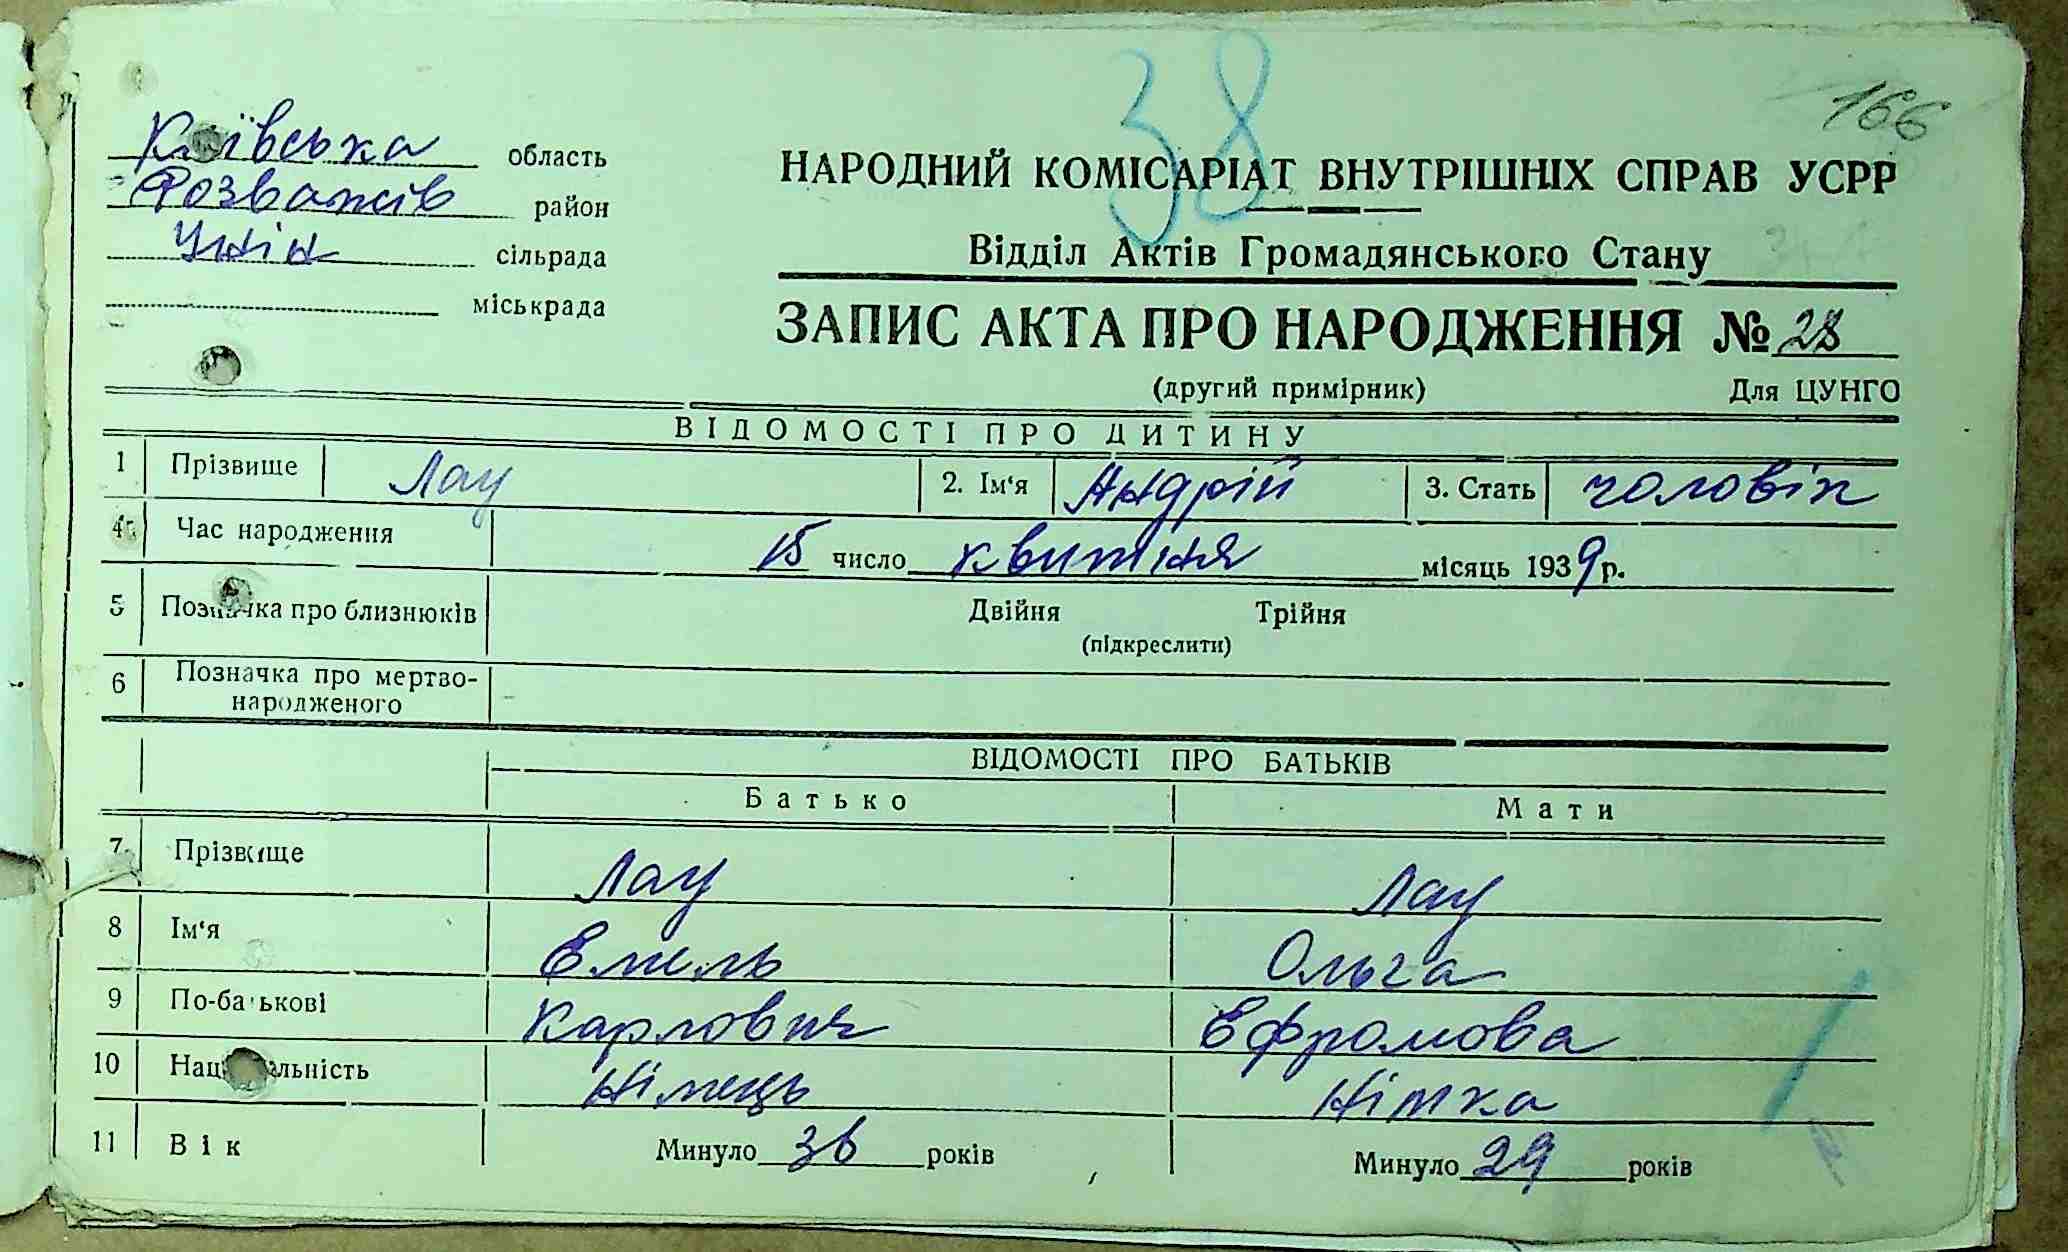 38
166
Київська область
Розважів район
Унін сільрада
міськрада
НАРОДНИЙ КОМІСАРІАТ ВНУТРІШНІХ СПРАВ УСРР
Відділ Актів Громадянського Стану
ЗАПИС АКТА ПРО НАРОДЖЕННЯ № 28
(другий примірник) Для ЦУНГО
ВІДОМОСТІ ПРО ДИТИНУ
1 Прізвище Лау 2. Ім‘я Андрій 3. Стать чоловік
4 Час народження 15 число квитня місяць 1939 р.
5 Позначка про близнюків Двійня Трійня
(підкреслити)
6 Позначка про мертво-
народженого
ВІДОМОСТІ ПРО БАТЬКІВ
Батько Мати
7 Прізвище Лау Лау
8 Ім‘я Емель Ольга
9 По-батькові Карлович Ефромова
10 Національність Німець Німка
11 Вік Минуло 36 років Минуло 29 років